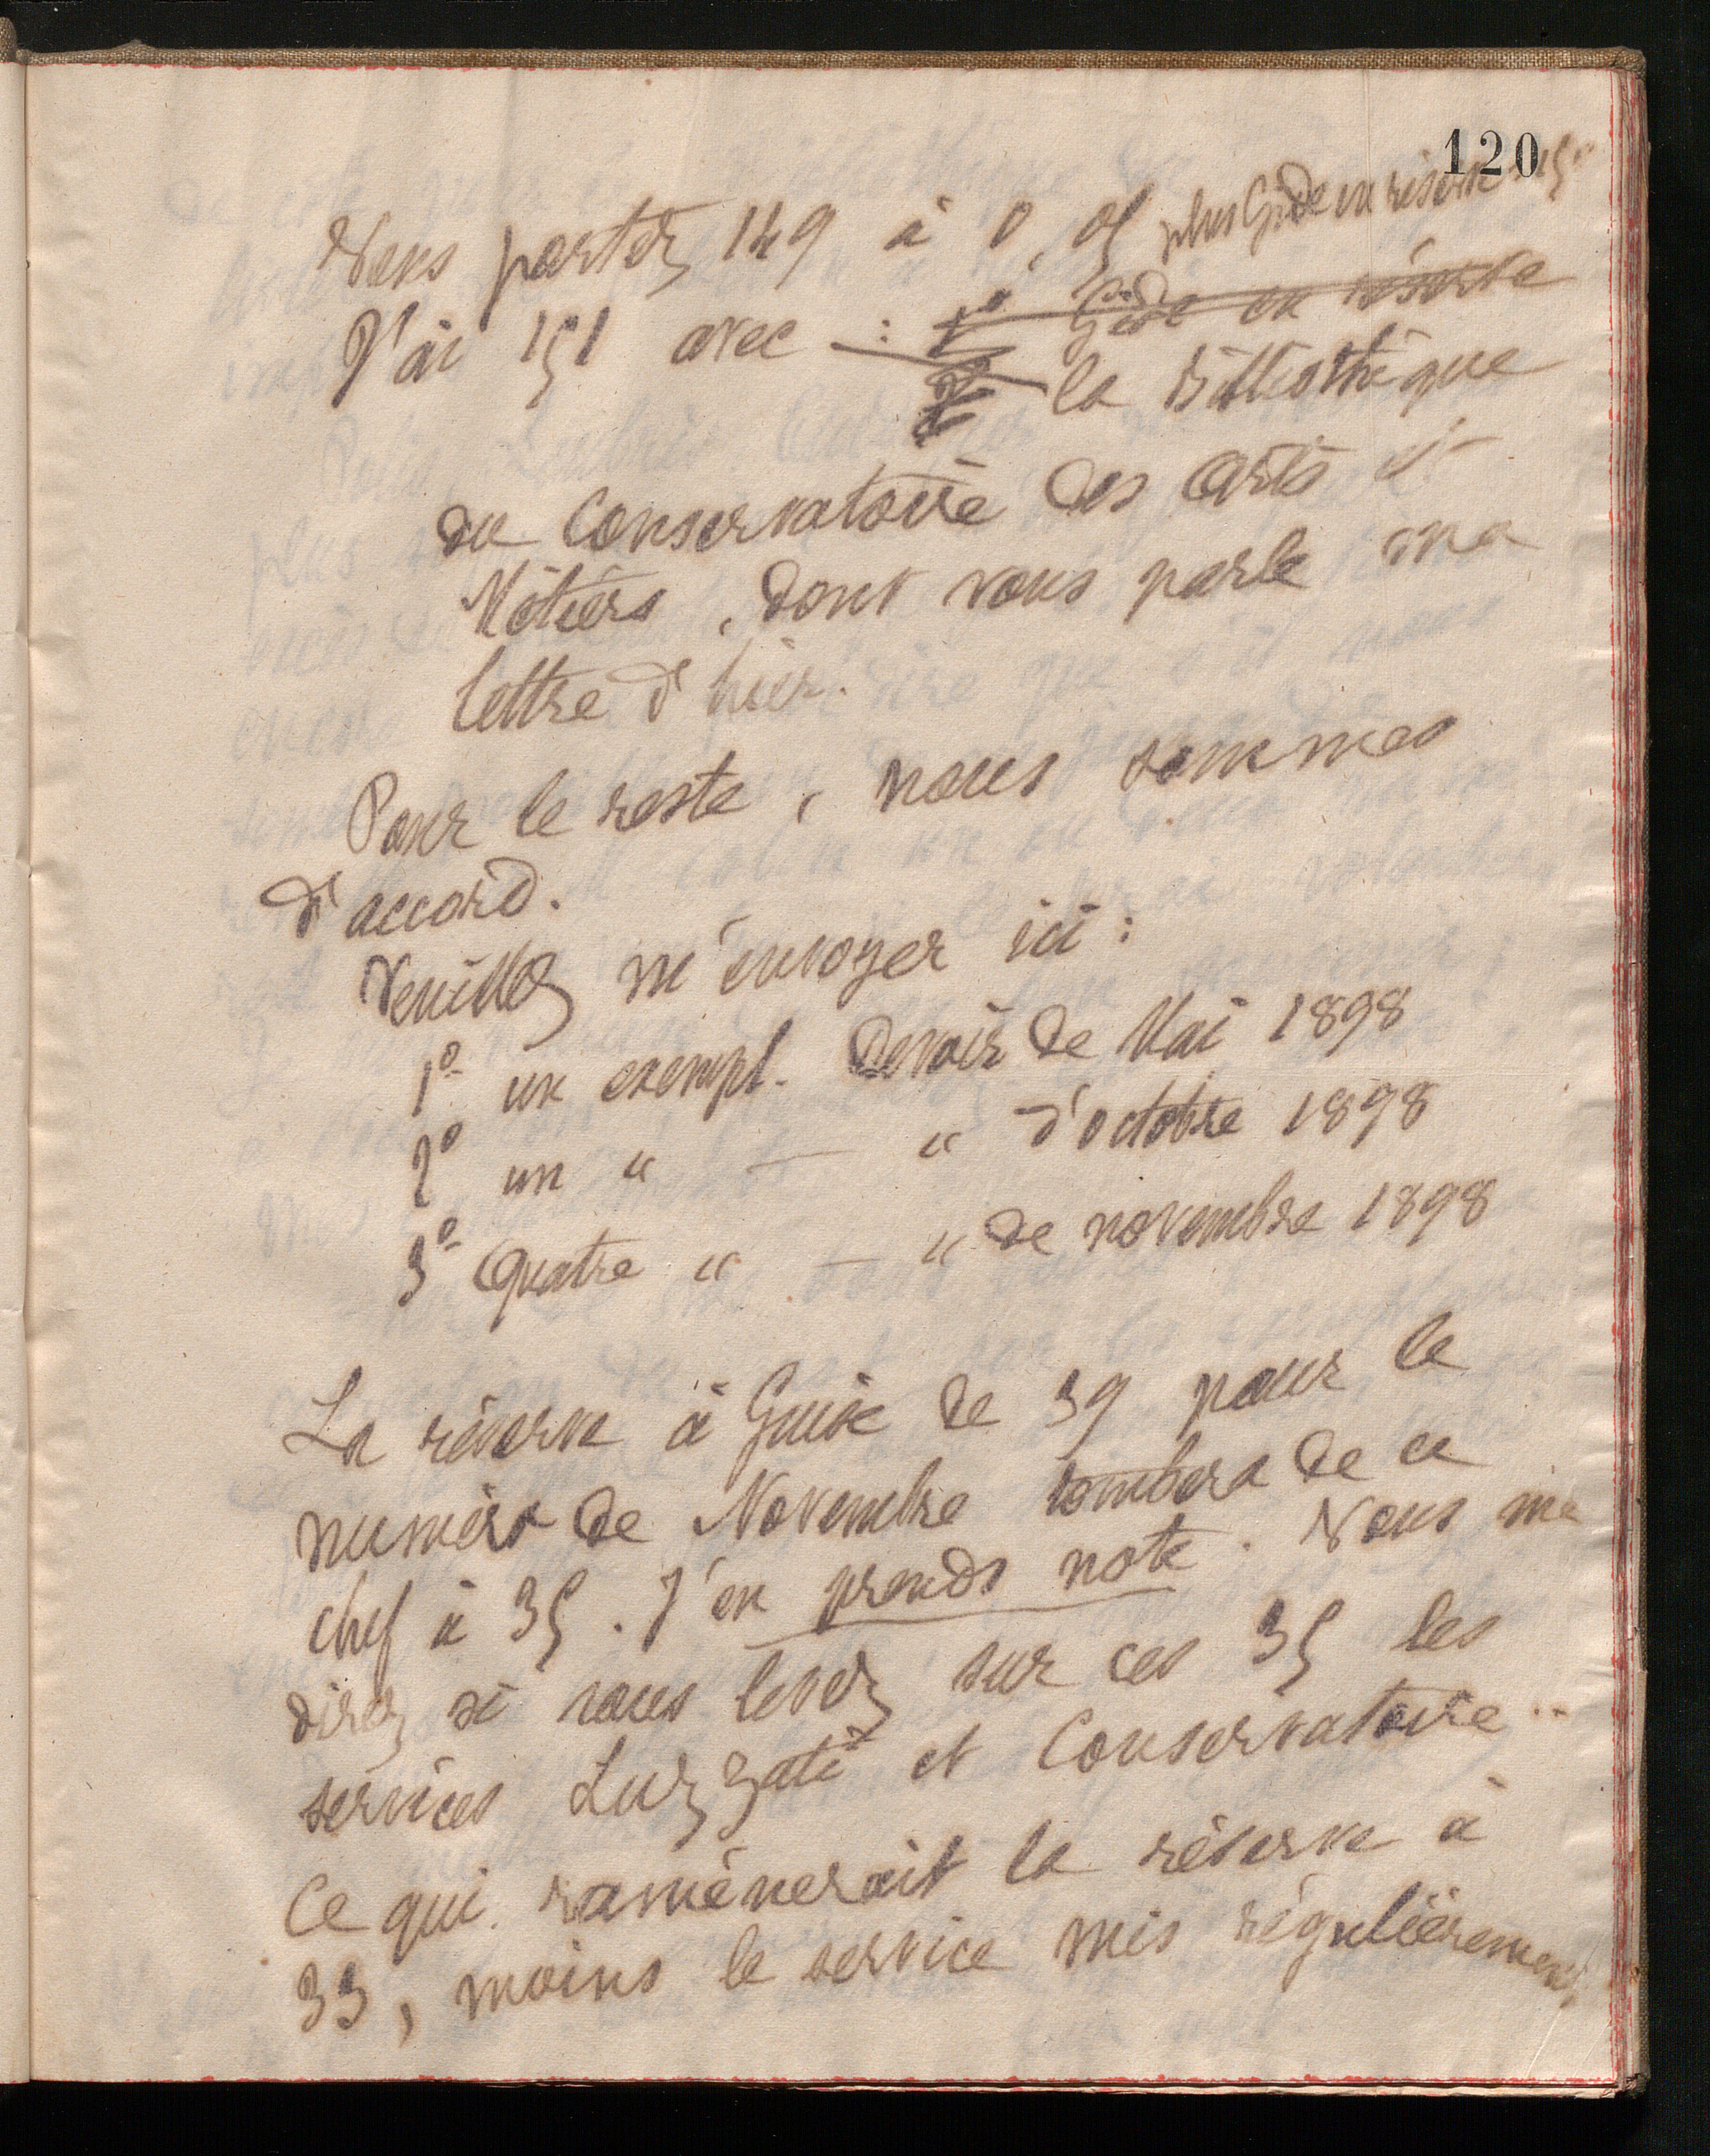 120
Vous portez 149 à 0,05 plus Gide en réserve
J'ai 151 avec : 1º Gide en réserve
2º la Bibliothèque
du Conservatoire des Arts et
Métiers, dont vous parle ma
lettre d'hier.
Pour le reste, nous sommes
d'accord.
Veuillez m'envoyer ici :
1º un exempl. Devoir de Mai 1898
2º un " — " d'octobre 1898
3º Quatre " — " de novembre 1898
La réserve à Guise de 39 pour le
numéro de Novembre tombera de ce
chef à 35. J'en prends note. Vous me
direz si vous levez sur ces 35 les
services Luzzati et Conservatoire
Ce qui ramènerait la réserve à
33, moins le service mis régulièrement